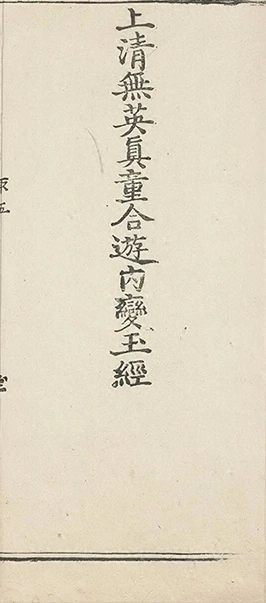 上清無英眞童合遊内變玉經